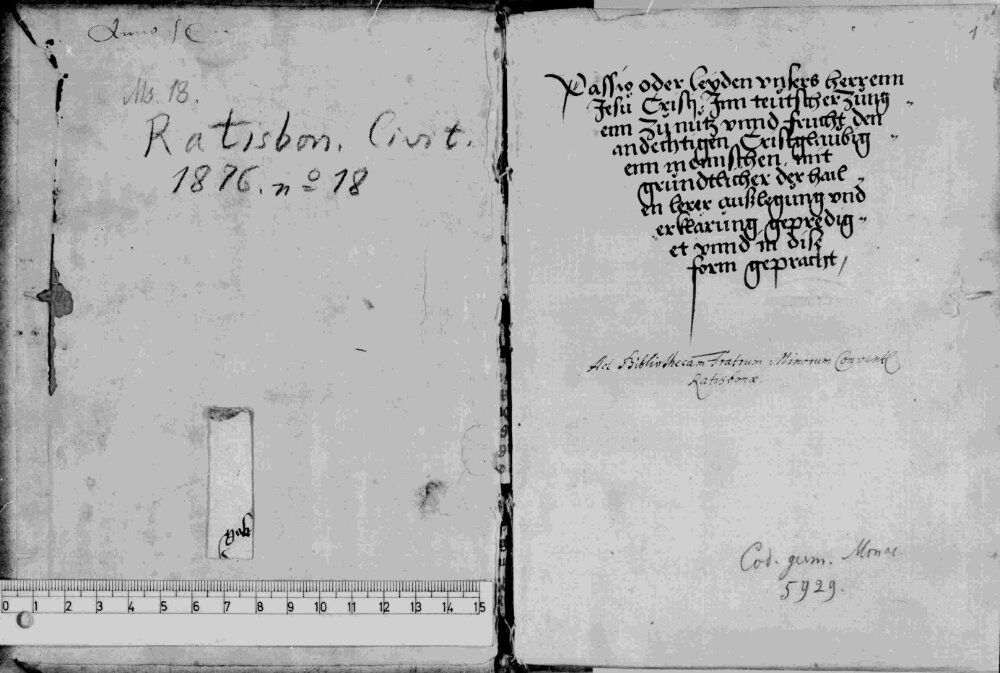 Anno
Ms. 18.
Ratisbon. Civit.
1876. nº 18
0 1 2 3 4 5 6 7 8 9 10 11 12 13 14 15
1
Passio oder leyden vnsers herrenn
Jesu Cristj Jnn teutscher zung
enn zu nutz vnnd frucht den
andechtigen Cristgelaubig
enn mennschen, mit
gründtlicher der hail
en lerer außlegung vnd
erklärung gepredig
et vnnd in dise
form gepracht /
Ad Bibliothecam Fratrum Minorum Convent
Ratisbonæ
Cod. germ. Monac.
5929.